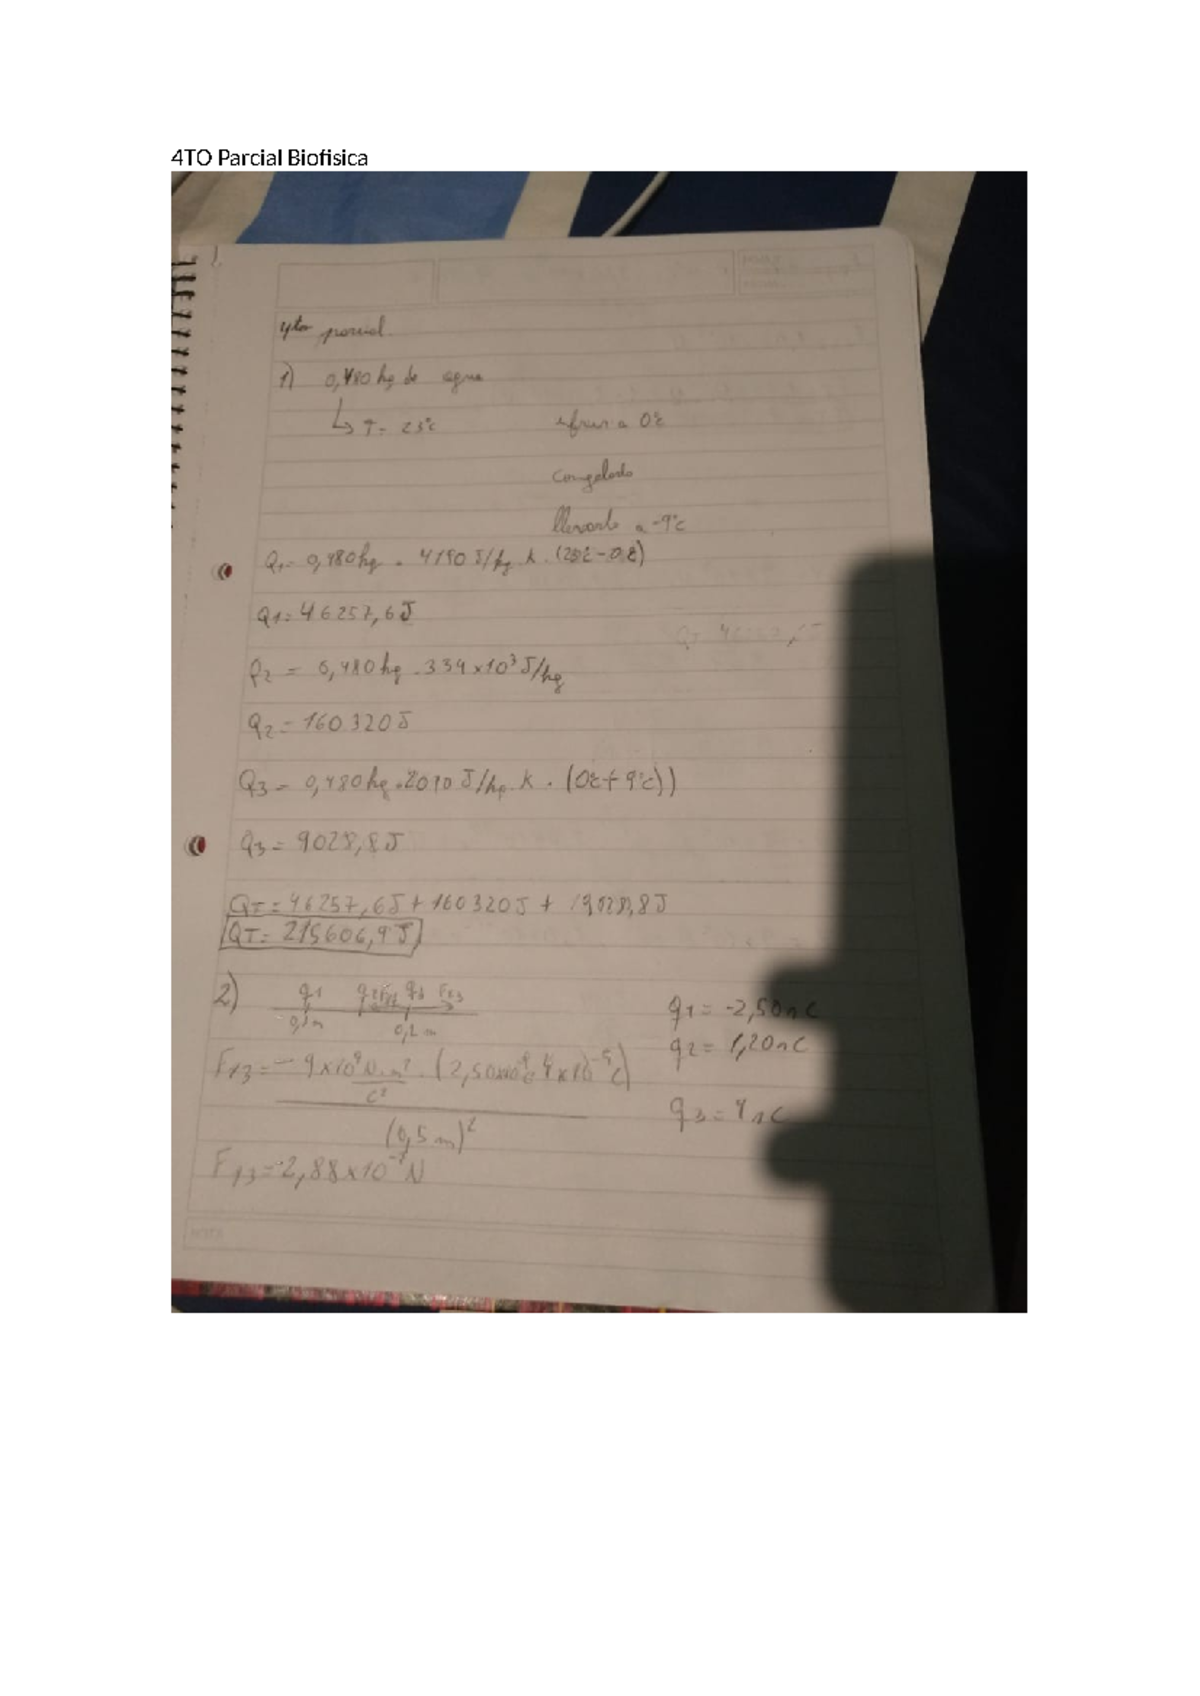 4TO Parcial Biofisica
4to parcial
1) 0,480 kg de agua
↳ T = 23°c
a 0°c
congelado
llevarlo a -9°c
Q1 = 0,480 kg . 4190 J/kg K . (23°c - 0°c)
Q1 = 46257,6 J
Q2 = 0,480 kg . 334 x 10³ J/kg
Q2 = 160320 J
Q3 = 0,480 kg . 2090 J/kg K . (0°c + 9°c))
Q3 = 9028,8 J
QT = 46257,6 J + 160320 J + 9028,8 J
QT = 215606,9 J
2) q1 q2 F23 q3 F13
0,3m 0,2 m
q1 = -2,50 nC
q2 = 1,20 nC
F13 = - 9x10⁹ N.m² . (2,50x10⁻⁹ 4x10⁻⁹ C)
C²
q3 = 4 nC
(0,5 m)²
F13 = -2,88 x 10⁻⁷ N